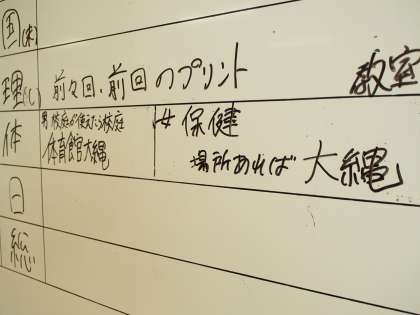 国(木)
理(C) 前々回、前回のプリント 教室
体 男 校庭が使えたら校庭 女 保健
体育館大縄 場所あれば 大縄
日
総